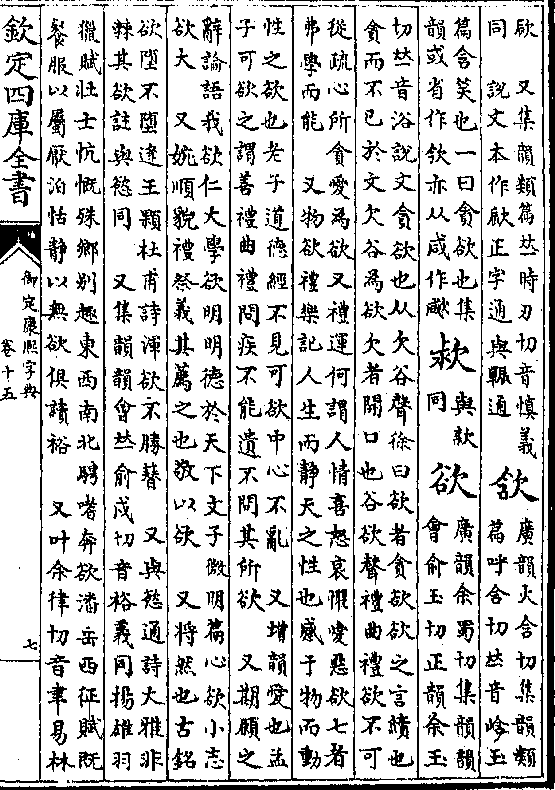 欣　又集韻類篇𠀤時刃切音慎義
同　說文本作㰮正字通與䡅通
欱
廣韻火含切集韻類
篇呼含切𠀤音峆玉
篇含笑也一曰貪欲也集
韻或省作欽亦从咸作㰹
欵
與款
同
欲
廣韻余蜀切集韻韻
會俞玉切正韻余玉
切𠀤音浴說文貪欲也从欠谷聲徐曰欲者貪欲欲之言續也
貪而不已於文欠谷為欲欠者開口也谷欲聲禮曲禮欲不可
從疏心所貪愛為欲又禮運何謂人情喜怒哀懼愛惡欲七者
弗學而能　又物欲禮樂記人生而靜天之性也感于物而動
性之欲也老子道德經不見可欲中心不亂　又增韻愛也孟
子可欲之謂善禮曲禮問疾不能遺不問其所欲　又期願之
辭論語我欲仁大學欲明明德於天下文子微明篇心欲小志
欲大　又婉順貌禮祭義其薦之也敬以欲　又將然也古銘
欲墮不墮逢王顆杜甫詩渾欲不勝簪　又與慾通詩大雅非
棘其欲註與慾同　又集韻韻會𠀤俞戍切音裕義同揚雄羽
獵賦壯士忼慨殊鄉別趣東西南北騁嗜奔欲潘岳西征賦既
餐服以屬厭泊恬靜以無欲俱讀裕　又叶余律切音聿易林
欽定四庫全書
御定康熙字典
卷十五
七